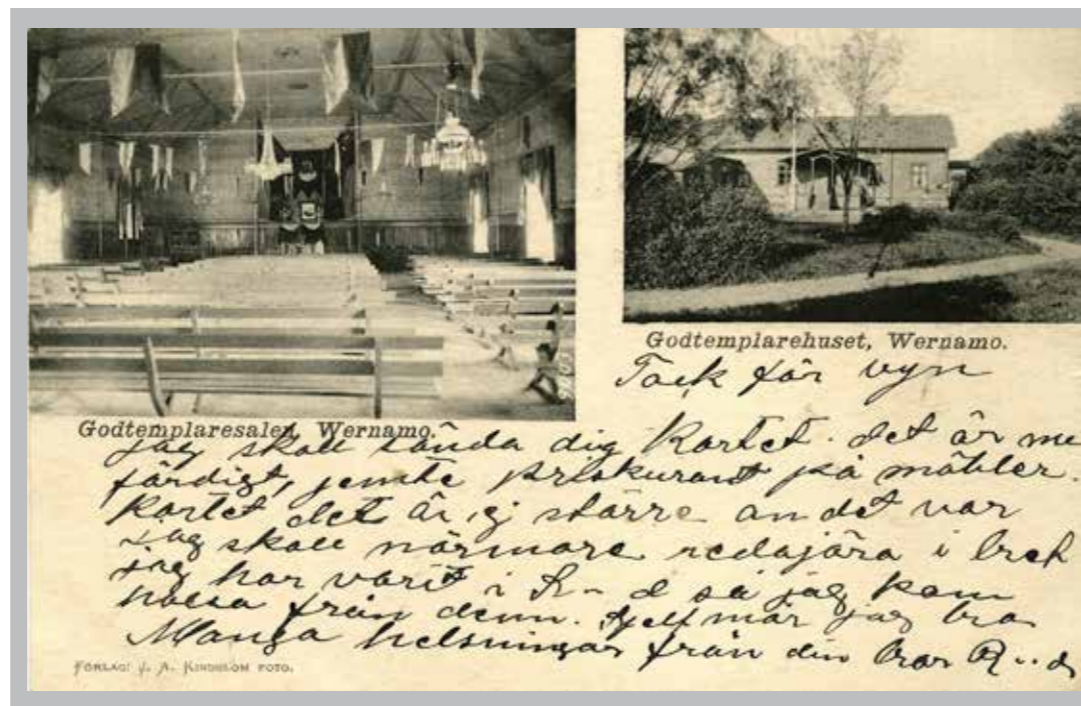 Godtemplarehuset, Wernamo.
Tack för vyn
Godtemplaresalen, Wernamo.
jag skall sända dig Kortet. det är nu
färdigt, jemte priskurant på möbler.
Kortet det är ej större än det var
jag skall närmare redogöra i bref
jag har varit i så jag kom
hälsa från dem. Sjelf mår jag bra
Många helsningar från din Bror
FÖRLAG: J. A. KINDBLOM FOTO.